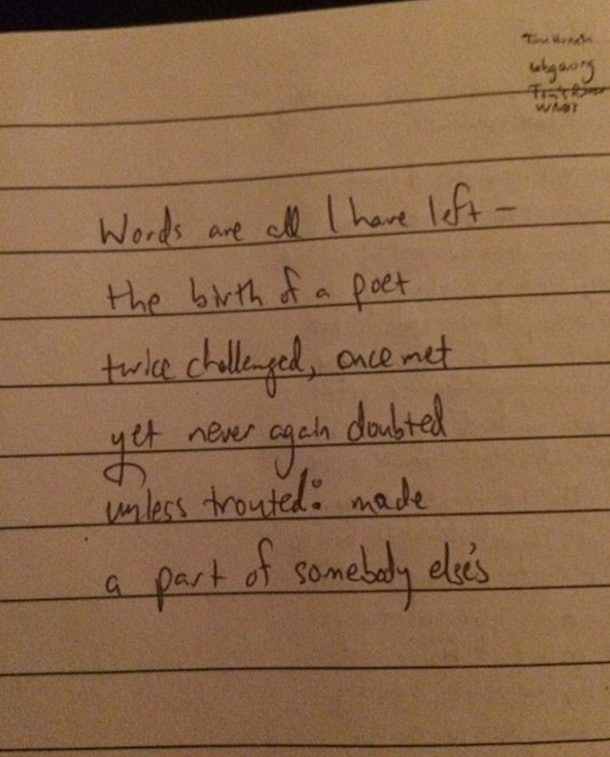 Words are all I have left –
the birth of a poet
twice challenged, once met
yet never again doubted
unless trouted: made
a part of somebody else's